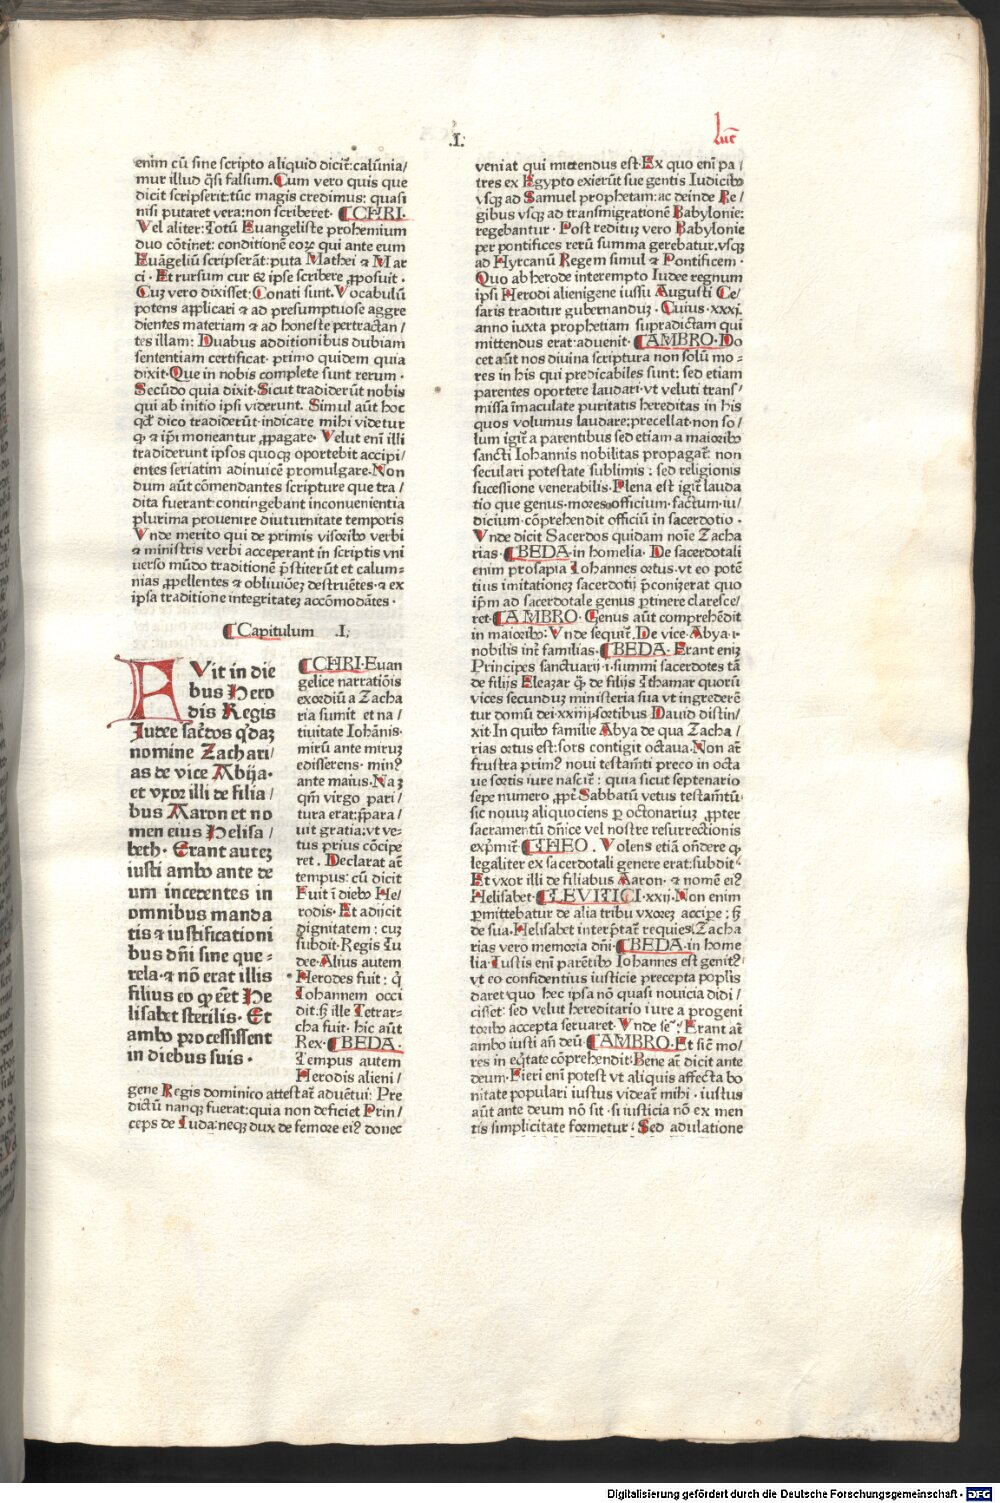 .I.
Luc̄
enim cū sine scripto aliquid dicit̄:calūnia/
mur illud q̄si falsum.Cum vero quis que
dicit scripserit:tūc magis credimus: quasi
nisi putaret vera:non scriberet. CHRI.
Vel aliter:Totū Euangeliste prohemium
duo cōtinet: conditionē eoꝝ qui ante eum
Euāgeliū scripserāt:puta Mathei ⁊ Mar
ci. Et rursum cur & ipse scribere ꝓposuit.
Cuꝫ vero dixisset:Conati sunt.Vocabulū
potens applicari ⁊ ad presumptuose aggre
dientes materiam ⁊ ad honeste pertractan/
tes illam: Duabus additionibus dubiam
sententiam certificat. primo quidem quia
dixit.Que in nobis complete sunt rerum.
Secūdo quia dixit.Sicut tradiderūt nobis
qui ab initio ipsi viderunt. Simul aūt hoc
qd̄ dico tradiderūt.indicare mihi videtur
ꝙ ⁊ ip̄i moneantur ꝓpagare. Velut eni illi
tradiderunt ipsos quoqꝫ oportebit accipi/
entes seriatim adinuicē promulgare.Non
dum aūt cōmendantes scripture que tra/
dita fuerant:contingebant inconuenientia
plurima prouenire diuturnitate temporis
Vnde merito qui de primis visoribꝰ verbi
⁊ ministris verbi acceperant in scriptis vni
uerso mūdo traditionē p̄stiterūt et calum=
nias ꝓpellentes ⁊ obliuiōeꝫ destruētes.⁊ ex
ipsa traditione integritateꝫ accōmodātes.
Capitulum .I.
FVit in die
bus Hero
dis Regis
Iudee sac̄dos q̄daꝫ
nomine Zachari/
as de vice Abija.
et vxor illi de filia/
bus Aaron et no
men eius Helisa/
beth. Erant auteꝫ
iusti ambo ante de
um incedentes in
omnibus manda
tis ⁊ iustificationi
bus dn̄i sine que=
rela.⁊ nō erat illis
filius eo ꝙ eēt He
lisabet sterilis. Et
ambo processissent
in diebus suis.
CHRI.Euan
gelice narratiōis
exordiū a Zacha
ria sumit et na/
tiuitate Iohānis.
mirū ante miruꝫ
edisserens. minꝰ
ante maius.Naꝫ
qm̄ virgo pari/
tura erat:p̄para/
uit gratia:vt ve=
tus prius cōcipe
ret. Declarat aūt
tempus: cū dicit
Fuit ī diebꝰ He/
rodis. Et adijcit
dignitatem: cuꝫ
subdit.Regis Iu
dee.Alius autem
Herodes fuit: q̄
Iohannem occi
dit.ſꝫ ille Tetrar=
cha fuit. hic aūt
Rex. BEDA.
Tempus autem
Herodis alieni/
gene Regis dominico attestat̄ aduētui: Pre
dictū nanqꝫ fuerat:quia non deficiet Prin/
ceps de Iuda:neqꝫ dux de femore eiꝰ donec
veniat qui mittendus est.Ex quo eni pa/
tres ex Egypto exierūt sue gentis Iudicibꝰ
vsqꝫ ad Samuel prophetam:ac deinde Re/
gibus vsqꝫ ad transmigrationē Babylonie:
regebantur. Post redituꝫ vero Babylonie
per pontifices rerū summa gerebatur.vsqꝫ
ad Hyrcanū Regem simul ⁊ Pontificem.
Quo ab herode interempto Iudee regnum
ipsi Herodi alienigene iussu Augusti Ce/
saris traditur gubernanduꝫ. Cuius.xxxj.
anno iuxta prophetiam supradictam qui
mittendus erat:aduenit. AMBRO.Do
cet aūt nos diuina scriptura non solū mo=
res in his qui predicabiles sunt: sed etiam
parentes oportere laudari.vt veluti trans/
missa īmaculate puritatis hereditas in his
quos volumus laudare:precellat.non so/
lum igit̄ a parentibus sed etiam a maioribꝰ
sancti Iohannis nobilitas propagat̄: non
seculari potestate sublimis: sed religionis
sucessione venerabilis.Plena est igit̄ lauda
tio que genus.mores.officium.factum.iu/
dicium.cōprehendit officiū in sacerdotio.
Vnde dicit Sacerdos quidam noīe Zacha
rias. BEDA.in homelia. De sacerdotali
enim prosapia Iohannes ortus.vt eo potē
tius imitationeꝫ sacerdotij p̄conizerat quo
ip̄m ad sacerdotale genus ꝑtinere claresce/
ret. AMBRO. Genus aūt comprehēdit
in maioribꝰ: Vnde sequit̄. De vice Abya.i.
nobilis int̄ familias. BEDA. Erant eniꝫ
Principes sanctuarij.i.summi sacerdotes tā
de filijs Eleazar q̄ de filijs Ithamar quorū
vices secunduꝫ ministeria sua vt ingrederē
tur domū dei.xxiiij.sortibus Dauid distin/
xit.In quibꝰ familie Abya de qua Zacha/
rias ortus est:sors contigit octaua.Non aūt
frustra primꝰ noui testam̄ti preco in octa
ue sortis iure nascit̄: quia sicut septenario
sepe numero ꝓpt̄ Sabbatū vetus testam̄tū.
sic nouuꝫ aliquociens ꝑ octonariuꝫ ꝓpter
sacramentū dn̄ice vel nostre resurrectionis
exp̄mit̄. THEO. Volens etiā on̄dere ꝙ
legaliter ex sacerdotali genere erat:subdit.
Et vxor illi de filiabus Aaron. ⁊ nomē eiꝰ
Helisabet. LEVITICI.xxij.Non enim
ꝑmittebatur de alia tribu vxoreꝫ accipe: ſꝫ
de sua.Helisabet interp̄tat̄ requies.Zacha
rias vero memoria dn̄i. BEDA.in home
lia.Iustis eni parētibꝰ Iohannes est genitꝰ
vt eo confidentius iusticie precepta poplis
daret quo hec ipsa nō quasi nouicia didi/
cisset: sed velut hereditario iure a progeni
toribꝰ accepta seruaret. Vnde seq̄r: Erant aūt
ambo iusti an̄ deū. AMBRO.Et siē mo/
res in eq̄tate cōprehendit.Bene aūt dicit ante
deum.Fieri eni potest vt aliquis affecta bo
nitate populari iustus videat̄ mihi. iustus
aūt ante deum nō sit.si iusticia nō ex men
tis simplicitate formetur: Sed adulatione
Digitalisierung gefördert durch die Deutsche Forschungsgemeinschaft - DFG